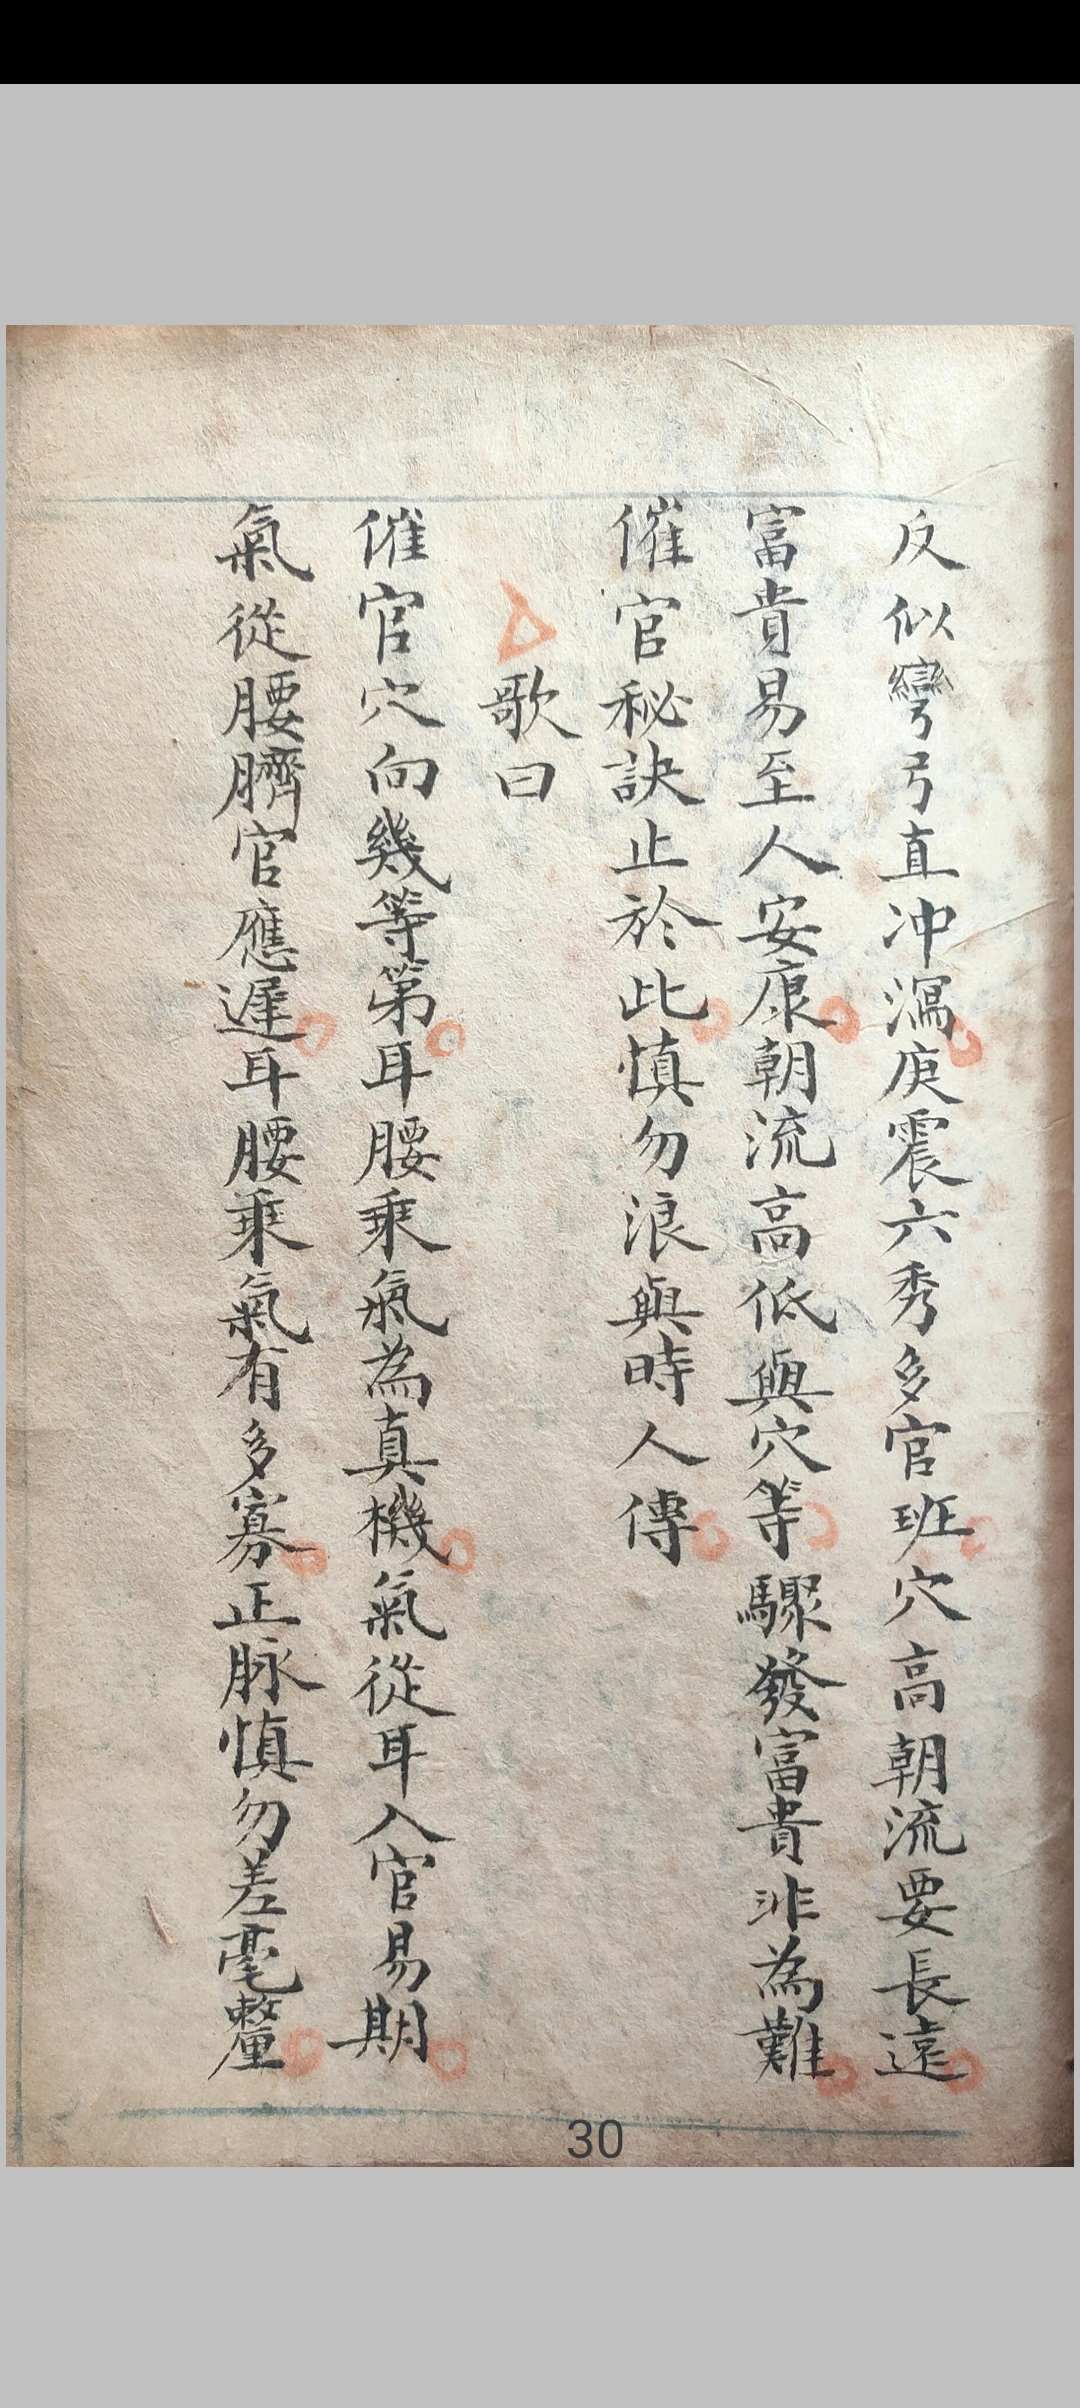 反似彎弓直冲瀉庚震六秀多官班穴高朝流要長遠
富貴易至人安康朝流高低與穴等驟發富貴非為難
催官秘訣止於此慎勿浪與時人傳
歌曰
催官穴向幾等第耳腰乘氣為真機氣從耳入官易期
氣從腰臍官應遲耳腰乘氣有多寡正脉慎勿差毫釐
30